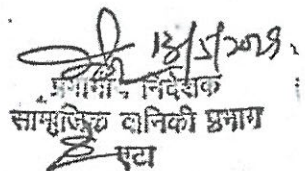 13/5/2025.
प्रभागीय निदेशक
सामाजिक वानिकी प्रभाग
एटा